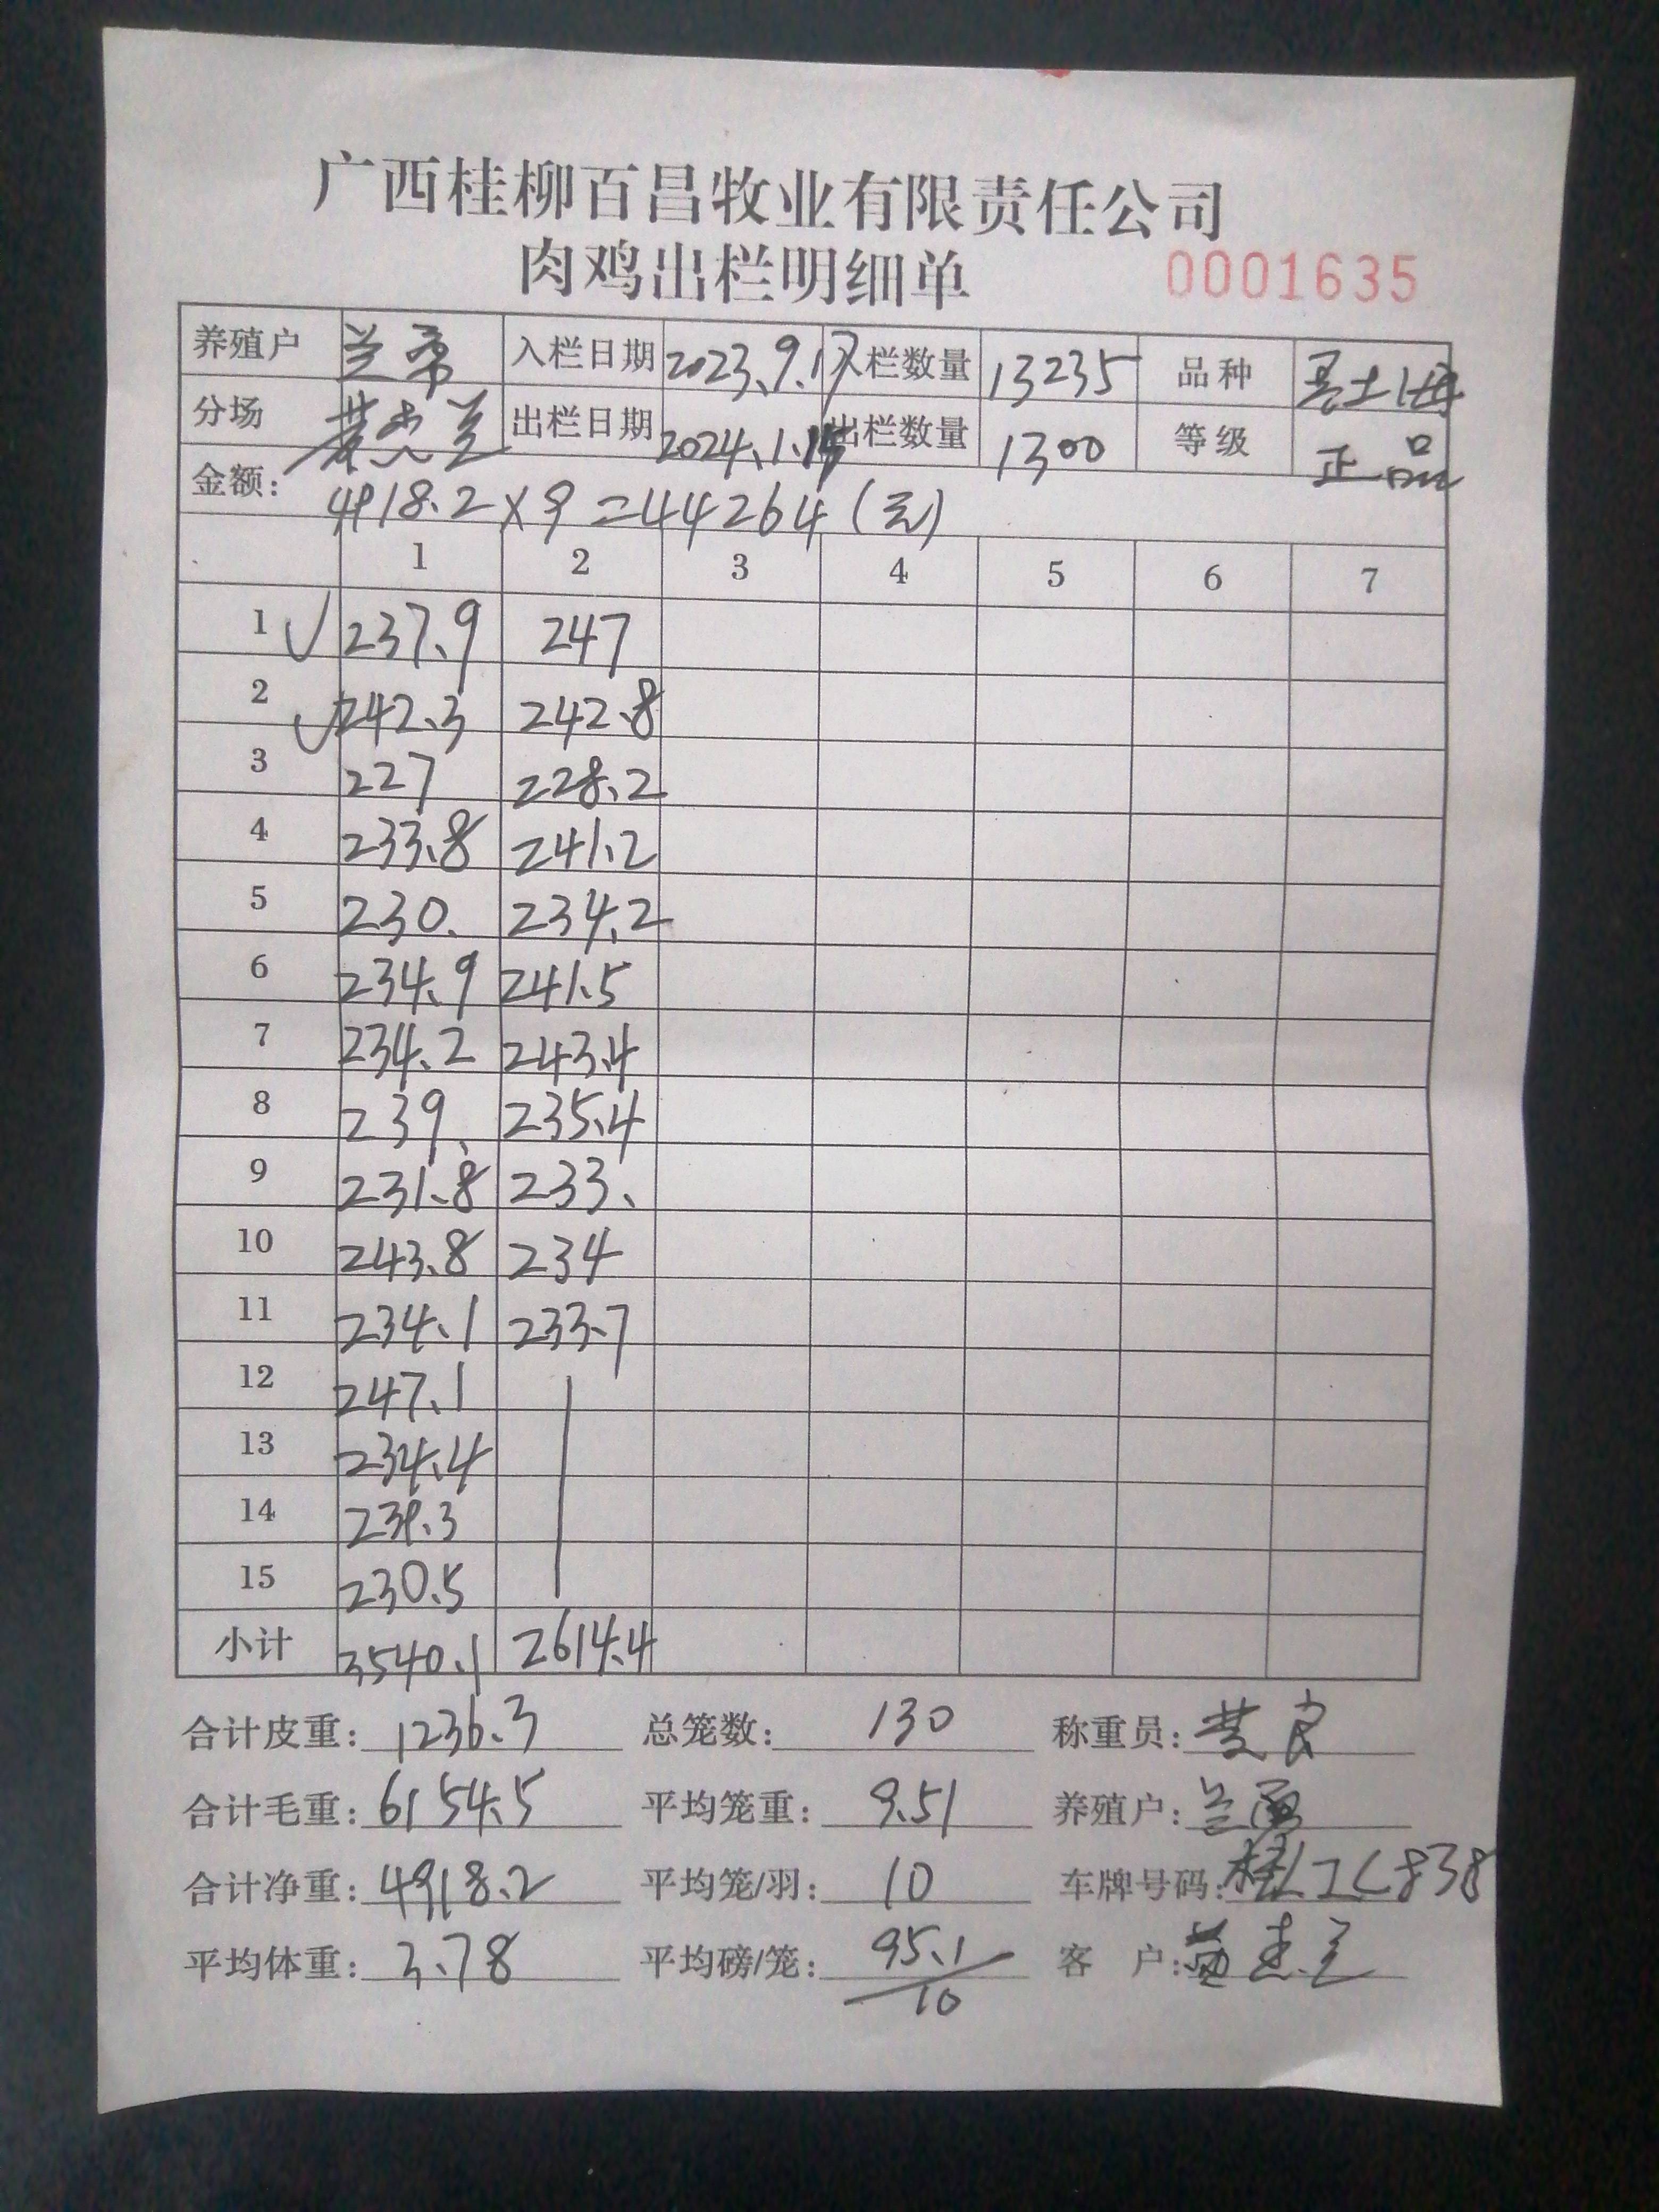 广西桂柳百昌牧业有限责任公司
肉鸡出栏明细单 0001635
养殖户 兰 入栏日期 2023.9.17 入栏数量 13235 品种
分场 出栏日期 2024.1.15 出栏数量 1300 等级 正品
金额: 4918.2×9=44264(元)
1 2 3 4 5 6 7
1 237.9 247
2 242.3 242.8
3 227 228.2
4 233.8 241.2
5 230. 234.2
6 234.9 241.5
7 234.2 243.4
8 239. 235.4
9 231.8 233.
10 243.8 234
11 234.1 233.7
12 247.1
13 234.4
14 239.3
15 230.5
小计 3540.1 2614.4
合计皮重: 1236.3 总笼数: 130 称重员:
合计毛重: 6154.5 平均笼重: 9.51 养殖户: 兰
合计净重: 4918.2 平均笼/羽: 10 车牌号码:
平均体重: 3.78 平均磅/笼: 95.1/10 客户: